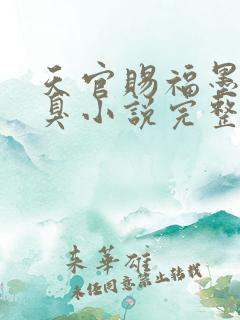 天官赐福墨
真小说完整
来华雄
未经同意禁止转载